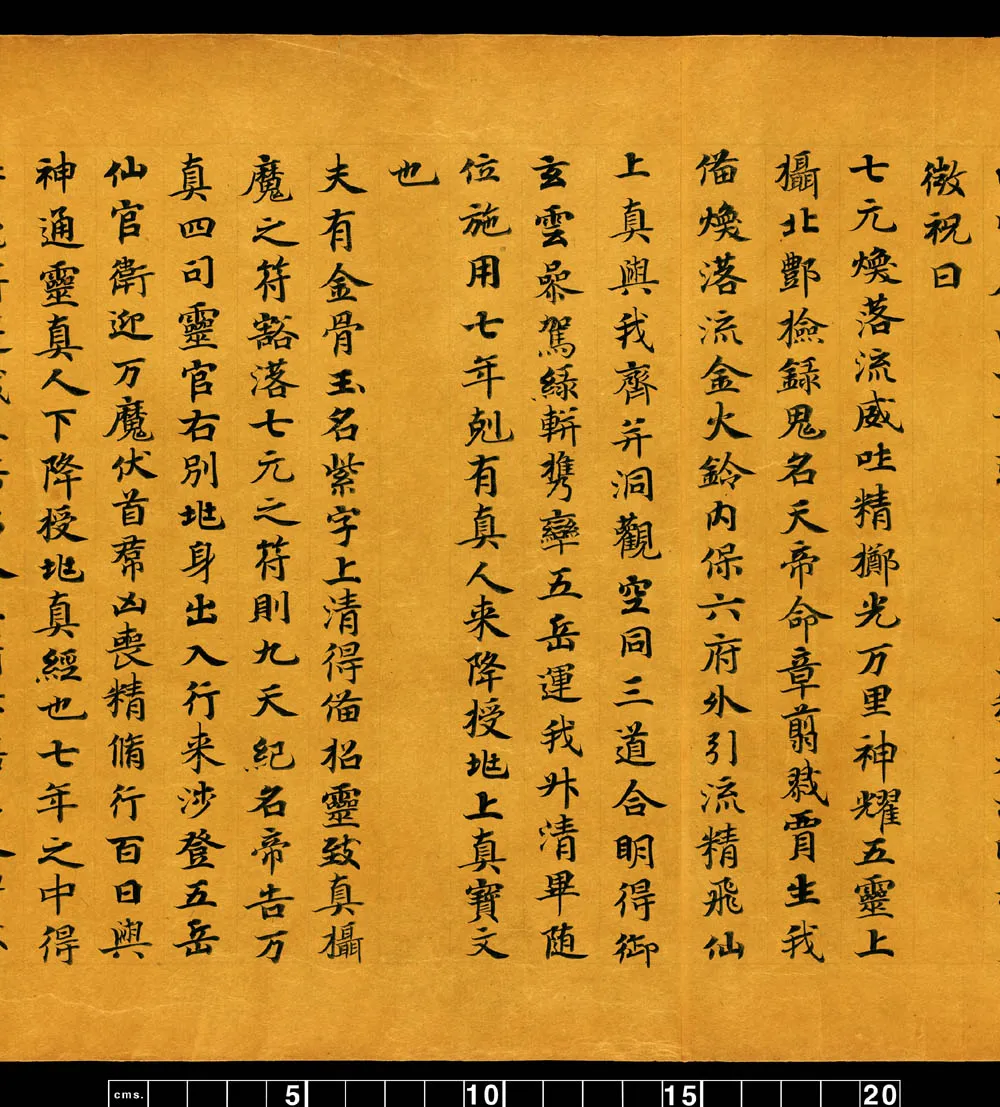 微祝曰
七元煥落流威吐精擲光万里神耀五靈上
攝北酆撿録鬼名天帝命章翦戮賈生我
俻煥落流金火鈴内保六府外引流精飛仙
上真與我齊并洞觀空同三道合明得御
玄雲㬥駕緑輧㩦轡五岳運我升清畢随
位施用七年剋有真人来降授𡊨上真寶文
也
夫有金骨玉名紫字上清得俻招靈致真攝
魔之符豁落七元之符則九天紀名帝告万
真四司靈官右別𡊨身出入行来涉登五岳
仙官衛迎万魔伏首羣凶喪精脩行百日與
神通靈真人下降授𡊨真經也七年之中得